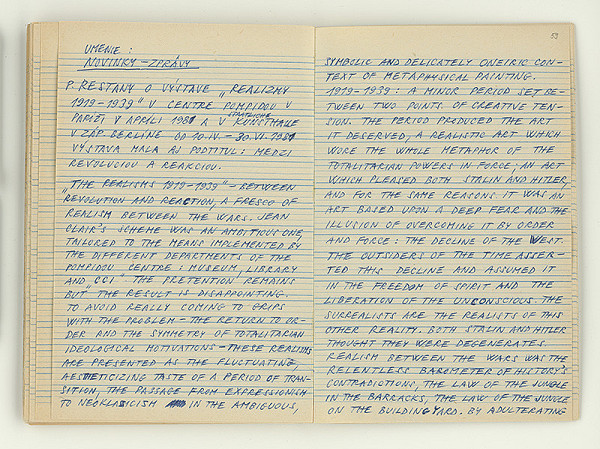 UMENIE :
NOVINKY - ZPRÁVY
P. REŠTANY O VÝSTAVE „REALIZMY
1919-1939" V CENTRE POMPIDOU V
PARÍŽI V APRÍLI 1981 A V STAATLICHE KUNSTHALLE
V ZÁP. BERLÍNE OD 10.IV. - 30.VI. 1981
VÝSTAVA MALA AJ PODTITUL: MEDZI
REVOLUCIOU A REAKCIOU.
"THE REALISMS 1919-1939" - BETWEEN
REVOLUTION AND REACTION, A FRESCO OF
REALISM BETWEEN THE WARS. JEAN
CLAIR'S SCHEME WAS AN AMBITIOUS ONE,
TAILORED TO THE MEANS IMPLEMENTED BY
THE DIFFERENT DEPARTMENTS OF THE
POMPIDOU CENTRE: MUSEUM, LIBRARY
AND "CCI" THE PRETENTION REMAINS
BUT THE RESULT IS DISAPPOINTING.
TO AVOID REALLY COMING TO GRIPS
WITH THE PROBLEM - THE RETURN TO OR-
DER AND THE SYMMETRY OF TOTALITARIAN
IDEOLOGICAL MOTIVATIONS - THESE REALISMS
ARE PRESENTED AS THE FLUCTUATING,
AESTHETICIZING TASTE OF A PERIOD OF TRAN-
SITION, THE PASSAGE FROM EXPRESSIONISM
TO NEOKLASICISM IN THE AMBIGUOUS,
59
SYMBOLIC AND DELICATELY ONEIRIC CON-
TEXT OF METAPHYSICAL PAINTING.
1919-1939: A MINOR PERIOD SET BE-
TWEEN TWO POINTS OF CREATIVE TEN-
SION. THE PERIOD PRODUCED THE ART
IT DESERVED, A REALISTIC ART WHICH
WORE THE WHOLE METAPHOR OF THE
TOTALITARIAN POWERS IN FORCE, AN ART
WHICH PLEASED BOTH STALIN AND HITLER,
AND FOR THE SAME REASONS IT WAS AN
ART BASED UPON A DEEP FEAR AND THE
ILLUSION OF OVERCOMING IT BY ORDER
AND FORCE: THE DECLINE OF THE WEST.
THE OUTSIDERS OF THE TIME ASSER-
TED THIS DECLINE AND ASSUMED IT
IN THE FREEDOM OF SPIRIT AND THE
LIBERATION OF THE UNCONSCIOUS. THE
SURREALISTS ARE THE REALISTS OF THIS
OTHER REALITY. BOTH STALIN AND HITLER
THOUGHT THEY WERE DEGENERATES.
REALISM BETWEEN THE WARS WAS THE
RELENTLESS BAROMETER OF HISTORY'S
CONTRADICTIONS, THE LAW OF THE JUNGLE
IN THE BARRACKS, THE LAW OF THE JUNGLE
ON THE BUILDING YARD. BY ADULTERATING